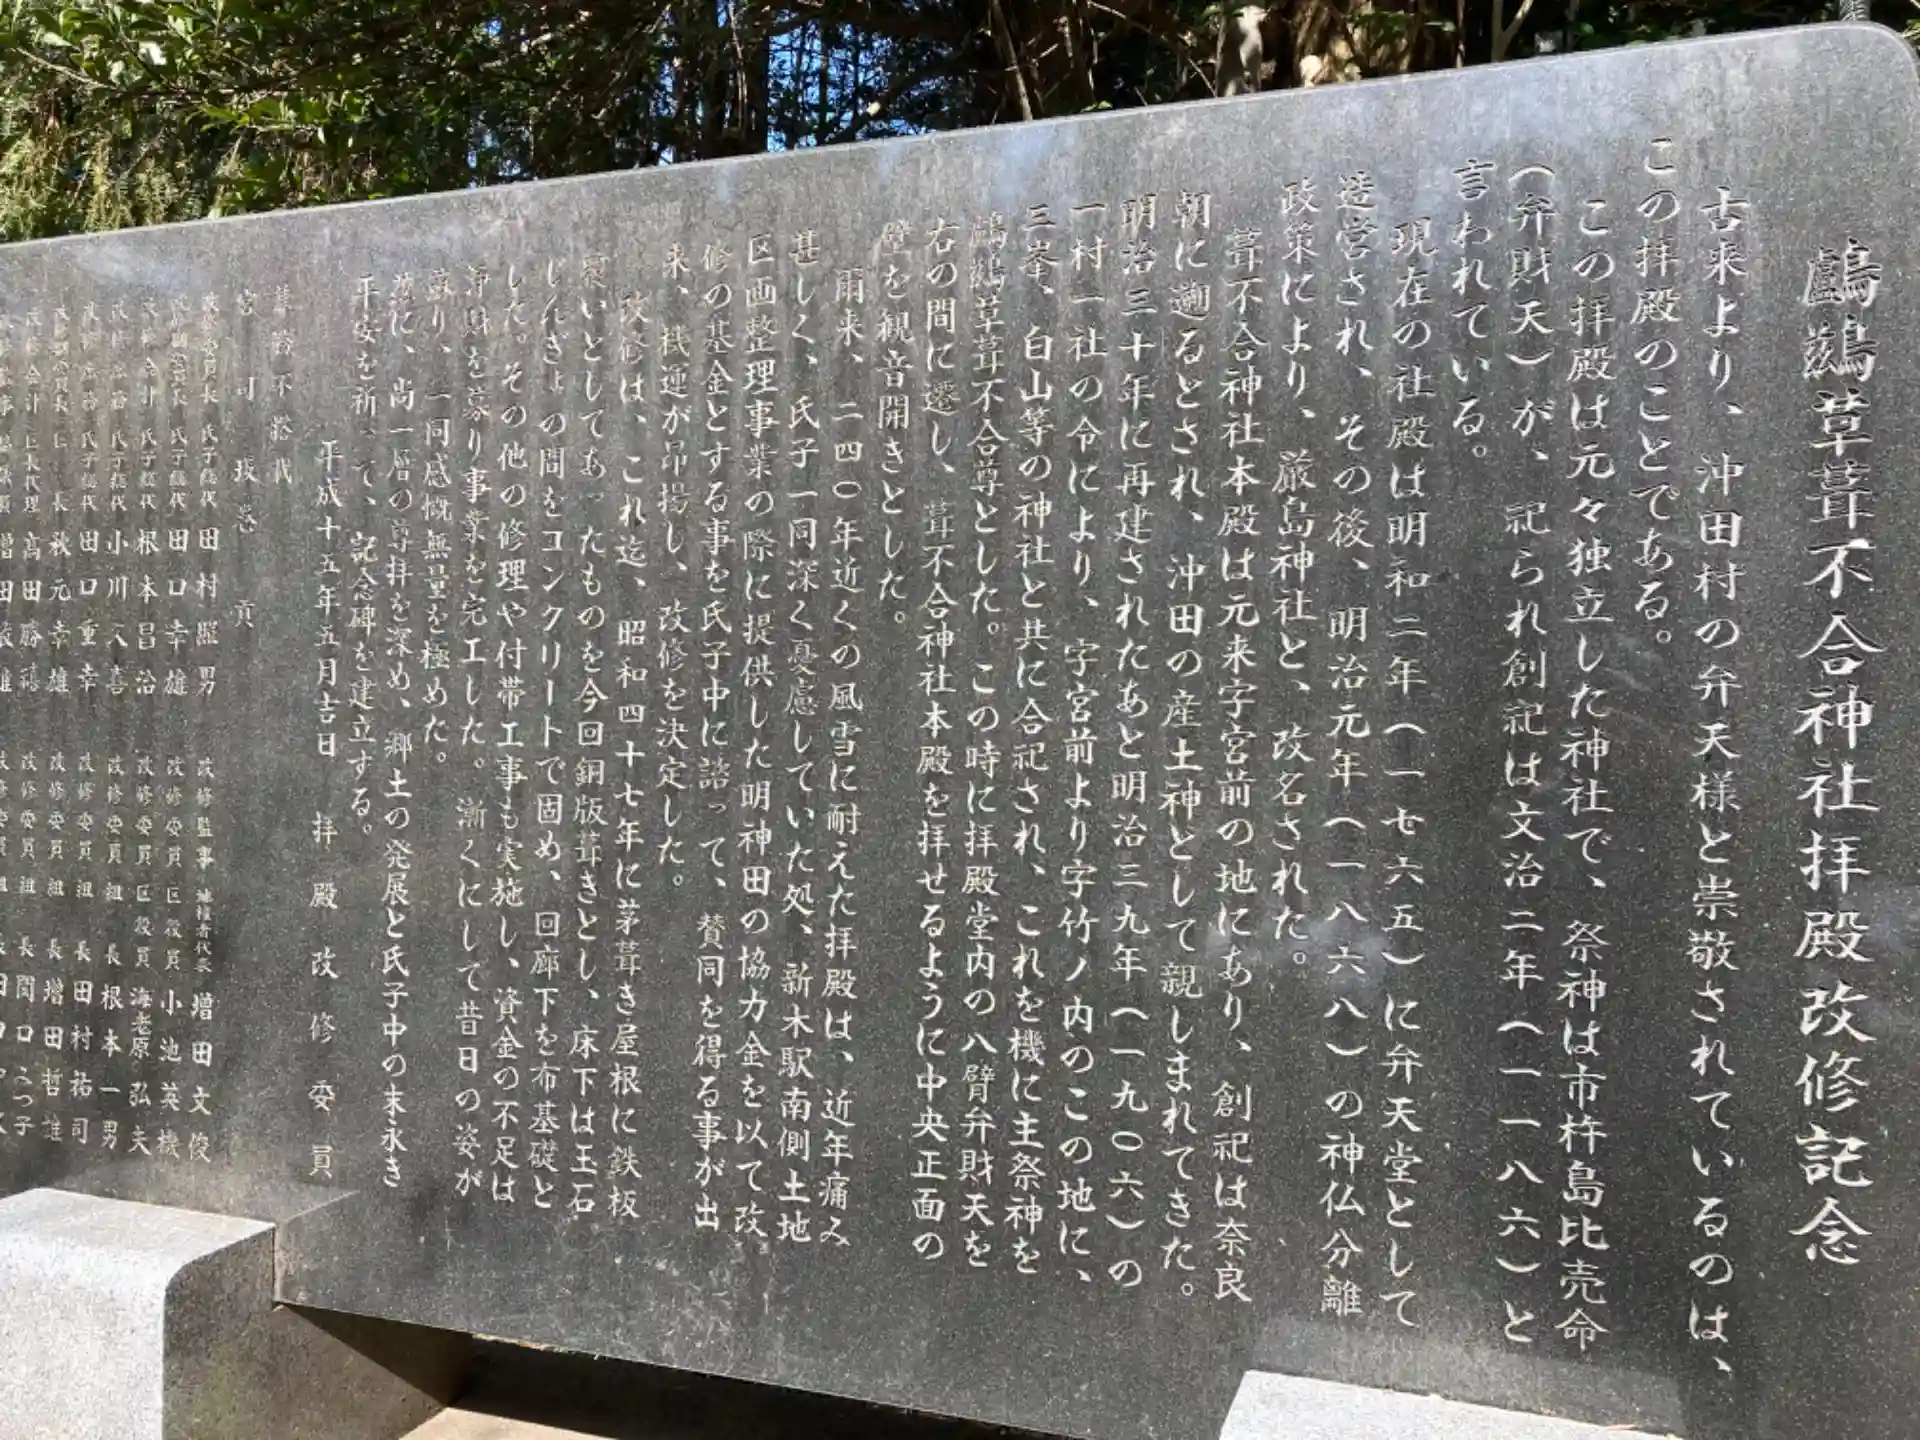 鸕鷀草葺不合神社拝殿改修記念
古来より、沖田村の弁天様と崇敬されているのは、
この拝殿のことである。
この拝殿は元々独立した神社で、祭神は市杵島比売命
(弁財天)が、祀られ創祀は文治二年(一一八六)と
言われている。
現在の社殿は明和二年(一七六五)に弁天堂として
造営され、その後、明治元年(一八六八)の神仏分離
政策により、厳島神社と、改名された。
葺不合神社本殿は元来字宮前の地にあり、創祀は奈良
朝に遡るとされ、沖田の産土神として親しまれてきた。
明治三十年に再建されたあと明治三九年(一九〇六)の
一村一社の令により、字宮前より字竹ノ内のこの地に、
三峯、白山等の神社と共に合祀され、これを機に主祭神を
鸕鷀草葺不合尊とした。この時に拝殿堂内の八臂弁財天を
右の間に遷し、葺不合神社本殿を拝せるように中央正面の
壁を観音開きとした。
爾来、二四〇年近くの風雪に耐えた拝殿は、近年痛み
甚しく、氏子一同深く憂慮していた処、新木駅南側土地
区画整理事業の際に提供した明神田の協力金を以て改
修の基金とする事を氏子中に諮って、賛同を得る事が出
来、機運が昂揚し、改修を決定した。
改修は、これ迄、昭和四十七年に茅葺き屋根に鉄板
覆いとしてあったものを今回銅版葺きとし、床下は玉石
じんぎょの間をコンクリートで固め、回廊下を布基礎と
した。その他の修理や付帯工事も実施し、資金の不足は
浄財を募り事業を完工した。漸くにして昔日の姿が
蘇り、一同感慨無量を極めた。
茲に、尚一層の尊拝を深め、郷土の発展と氏子中の末永き
平安を祈って、記念碑を建立する。
平成十五年五月吉日 拝殿改修委員
宮司 貢
氏子総代 田村 男 改修監事 地権者代表 増田文俊
氏子総代 田口幸雄 改修委員 区役員 小池英機
会計 氏子総代 根本昌治 改修委員 区役員 海老原弘夫
氏子総代 小川 喜 改修委員 組長 根本一男
氏子総代 田口重幸 改修委員 組長 田村祐司
区長 秋元幸雄 改修委員 組長 増田哲雄
会計 区長代理 高田勝 改修委員 組長 関口 子
増田